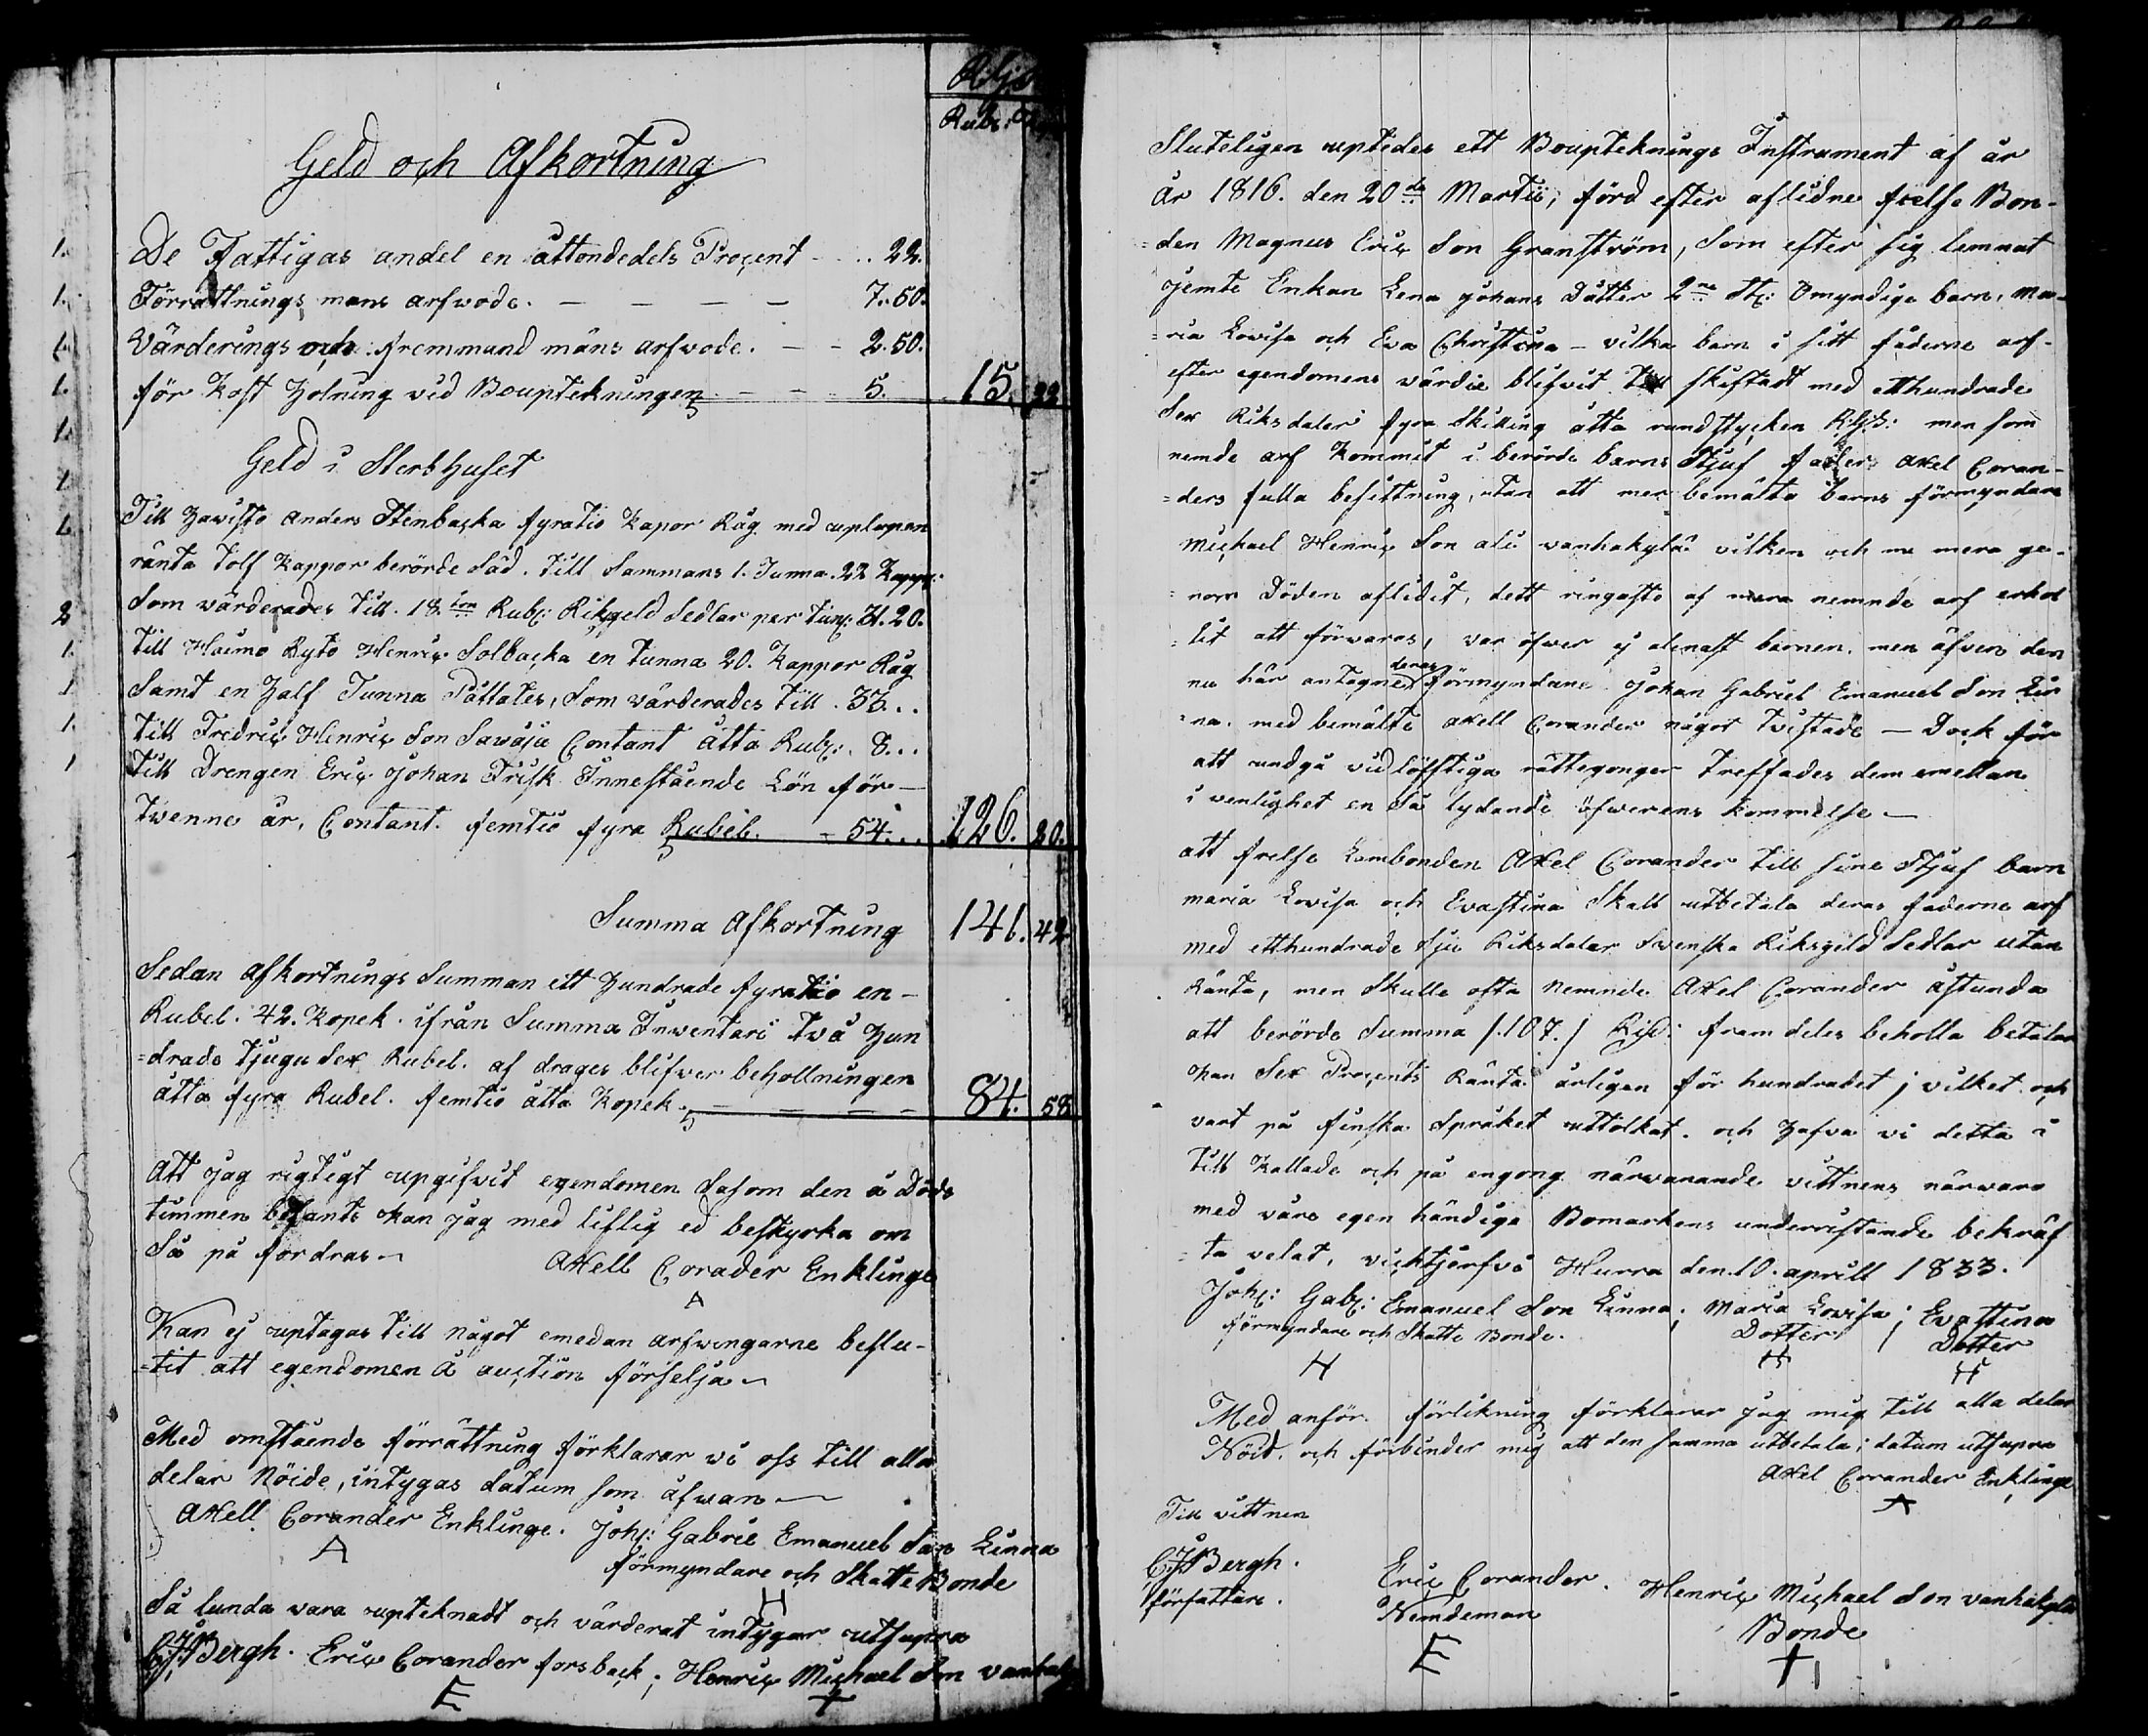 Rub:
Geld och Afkortning
1. De Fattigas andel en åttondedels Procent - .. 22.
1. Förrättnings mans arfwode. — — — — 7..50.
1. Värderings och fremmand mäns arfwode. — - 2.50.
1. för Kost Holning vid Boupteckningen - - 5. 15. 22
1.
Geld i Sterbhuset
Till Havisto Anders Stenbacka fyratio Kapor Råg med uplupen
ränta tolf Kappor berörde Säd. till Sammans 1. Tunna. 22 Kapp:
2 Som värderades till. 18.ton Rub: Riksgeld Sedlar per tun: 31.20.
1. till Haimo Ryto Henric Solbacka en tunna 20. Kappor Råg
1 Samt en Half Tunna Pättates, Som värderades till . 33...
1. till Fredric Henric Son Savoja Contant åtta Rub:. 8...
1 till Drengen Eric Johan Frisk Innestående Lön för —
twenne år, Contant. femtio fyra Rubel. - 54... 126. 20.
Summa Afkortning 141. 42
Sedan afkortnings Summan ett Hundrade fyratio en -
Rubel. 42. Kopek. ifrån Summa Inwentari två Hun
=drade tjugu Sex Rubel. af drages blifver behollningen
åttio fyra Rubel. femtio åtta Kopek. — — — — 84. 58
Att jag rigtigt upgifvit egendomen Såsom den å Döds
timmen befants kan jag med liflig ed bestyrka om
Så på fordras ~ Axell Corader Enklinge
A
Kan ej uptagas till något emedan arfwingarne beslu-
=tit att egendomen å auction förselja ~
Med omstående förrättning förklarar vi oss till alla
delar Nöide, intygas datum som åfwan —
Axell Corander Enklinge. Joh: Gabriel Emanuel Son Linna
A förmyndare och Skatte Bonde
H
Så lunda vara uptecknadt och värderat intygar utsupra
CJBergh. Eric Corander forsback; Henric Michael Son
E +
Sluteligen uptedes ett Bouptecknings Instrument af år
år 1816. den 20de Martii, förd efter aflidne frelse Bon-
=den Magnus Eric Son Granström, Som efter sig lemnat
jemte Enkan Lena Johans Dotter 2ne St: Omyndige barn, Ma-
=ria Lovisa och Eva Christina - vilka barn i sitt fäderne arf-
efter egendomens värdie blifvit till skiftadt med etthundrade
Sex Riksdaler fyra Skilling åtta rundstycken RGS: men som
nemde arf Kommit i berörde barns Stjuf fader Axel Coran-
=ders fulla besittning, utan att mer bemälta barns förmyndare
Michael Henric Son ali vanhakylä vilken och nu mera ge-
=nom Döden aflidit, dett ringaste af nemnde arf erhol
=lit att förvaras, var öfwer ej alenast barnen, men äfven den
nu här antagne deras förmyndare Johan Gabriel Emanuel Son Lin
=na. med bemälte Axell Corander något tvistade — Dock för
att undgå vidlöfftiga rättegonger treffades dem emellan
i venlighet en Så lydande öfwerens kommelse —
att frelse Lambonden Axel Corander till sine Stjuf barn
maria Lovisa och Evastina Skall utbetala deras faderne arf
med etthundrade Sju Riksdaler Swenska Riksgeld Sedlar utan
Ränta, men Skulle ofta Nemnde Axel Corander åstunda
att berörde Summa /.107./ Rijd: fram deles beholla betalar
han Sex Procents Ränta årligen för hundradet; vilket och
vart på finska Språket uttolkat. och Hafva vi detta i
till kallade och på engong närwarande vittnens närwaro
med våre egen händiga Bomarkens underristande bekräf
=ta velat, vichtjerfvi Hurra den 10. aprill 1833.
Joh: Gab: Emanuel Son Linna; Maria Lovisa; Evastina
förmyndare och Skatte Bonde. Dotter Dotter
H H H
Med anför. förlikning förklarar jag mig till alla delar
Nöid. och förbinder mig att den samma utbetala; datum utsupra
Axel Corander Enklinge
A
Till vittnen
CJBergh. Eric Corander. Henric Michael Son vanhakylä
författare. Nemdeman Bonde
E +